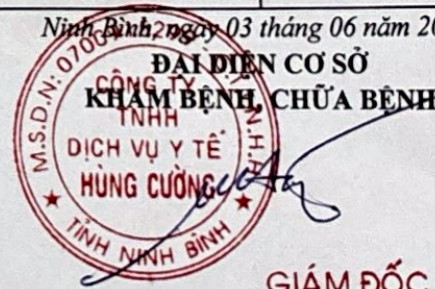 Ninh Bình, ngày 03 tháng 06 năm 20
ĐẠI DIỆN CƠ SỞ
KHÁM BỆNH, CHỮA BỆNH
M.S.D.N: 0700
T.N.H.H
CÔNG TY
TNHH
DỊCH VỤ Y TẾ
HÙNG CƯỜNG
★ TỈNH NINH BÌNH ★
GIÁM ĐỐC